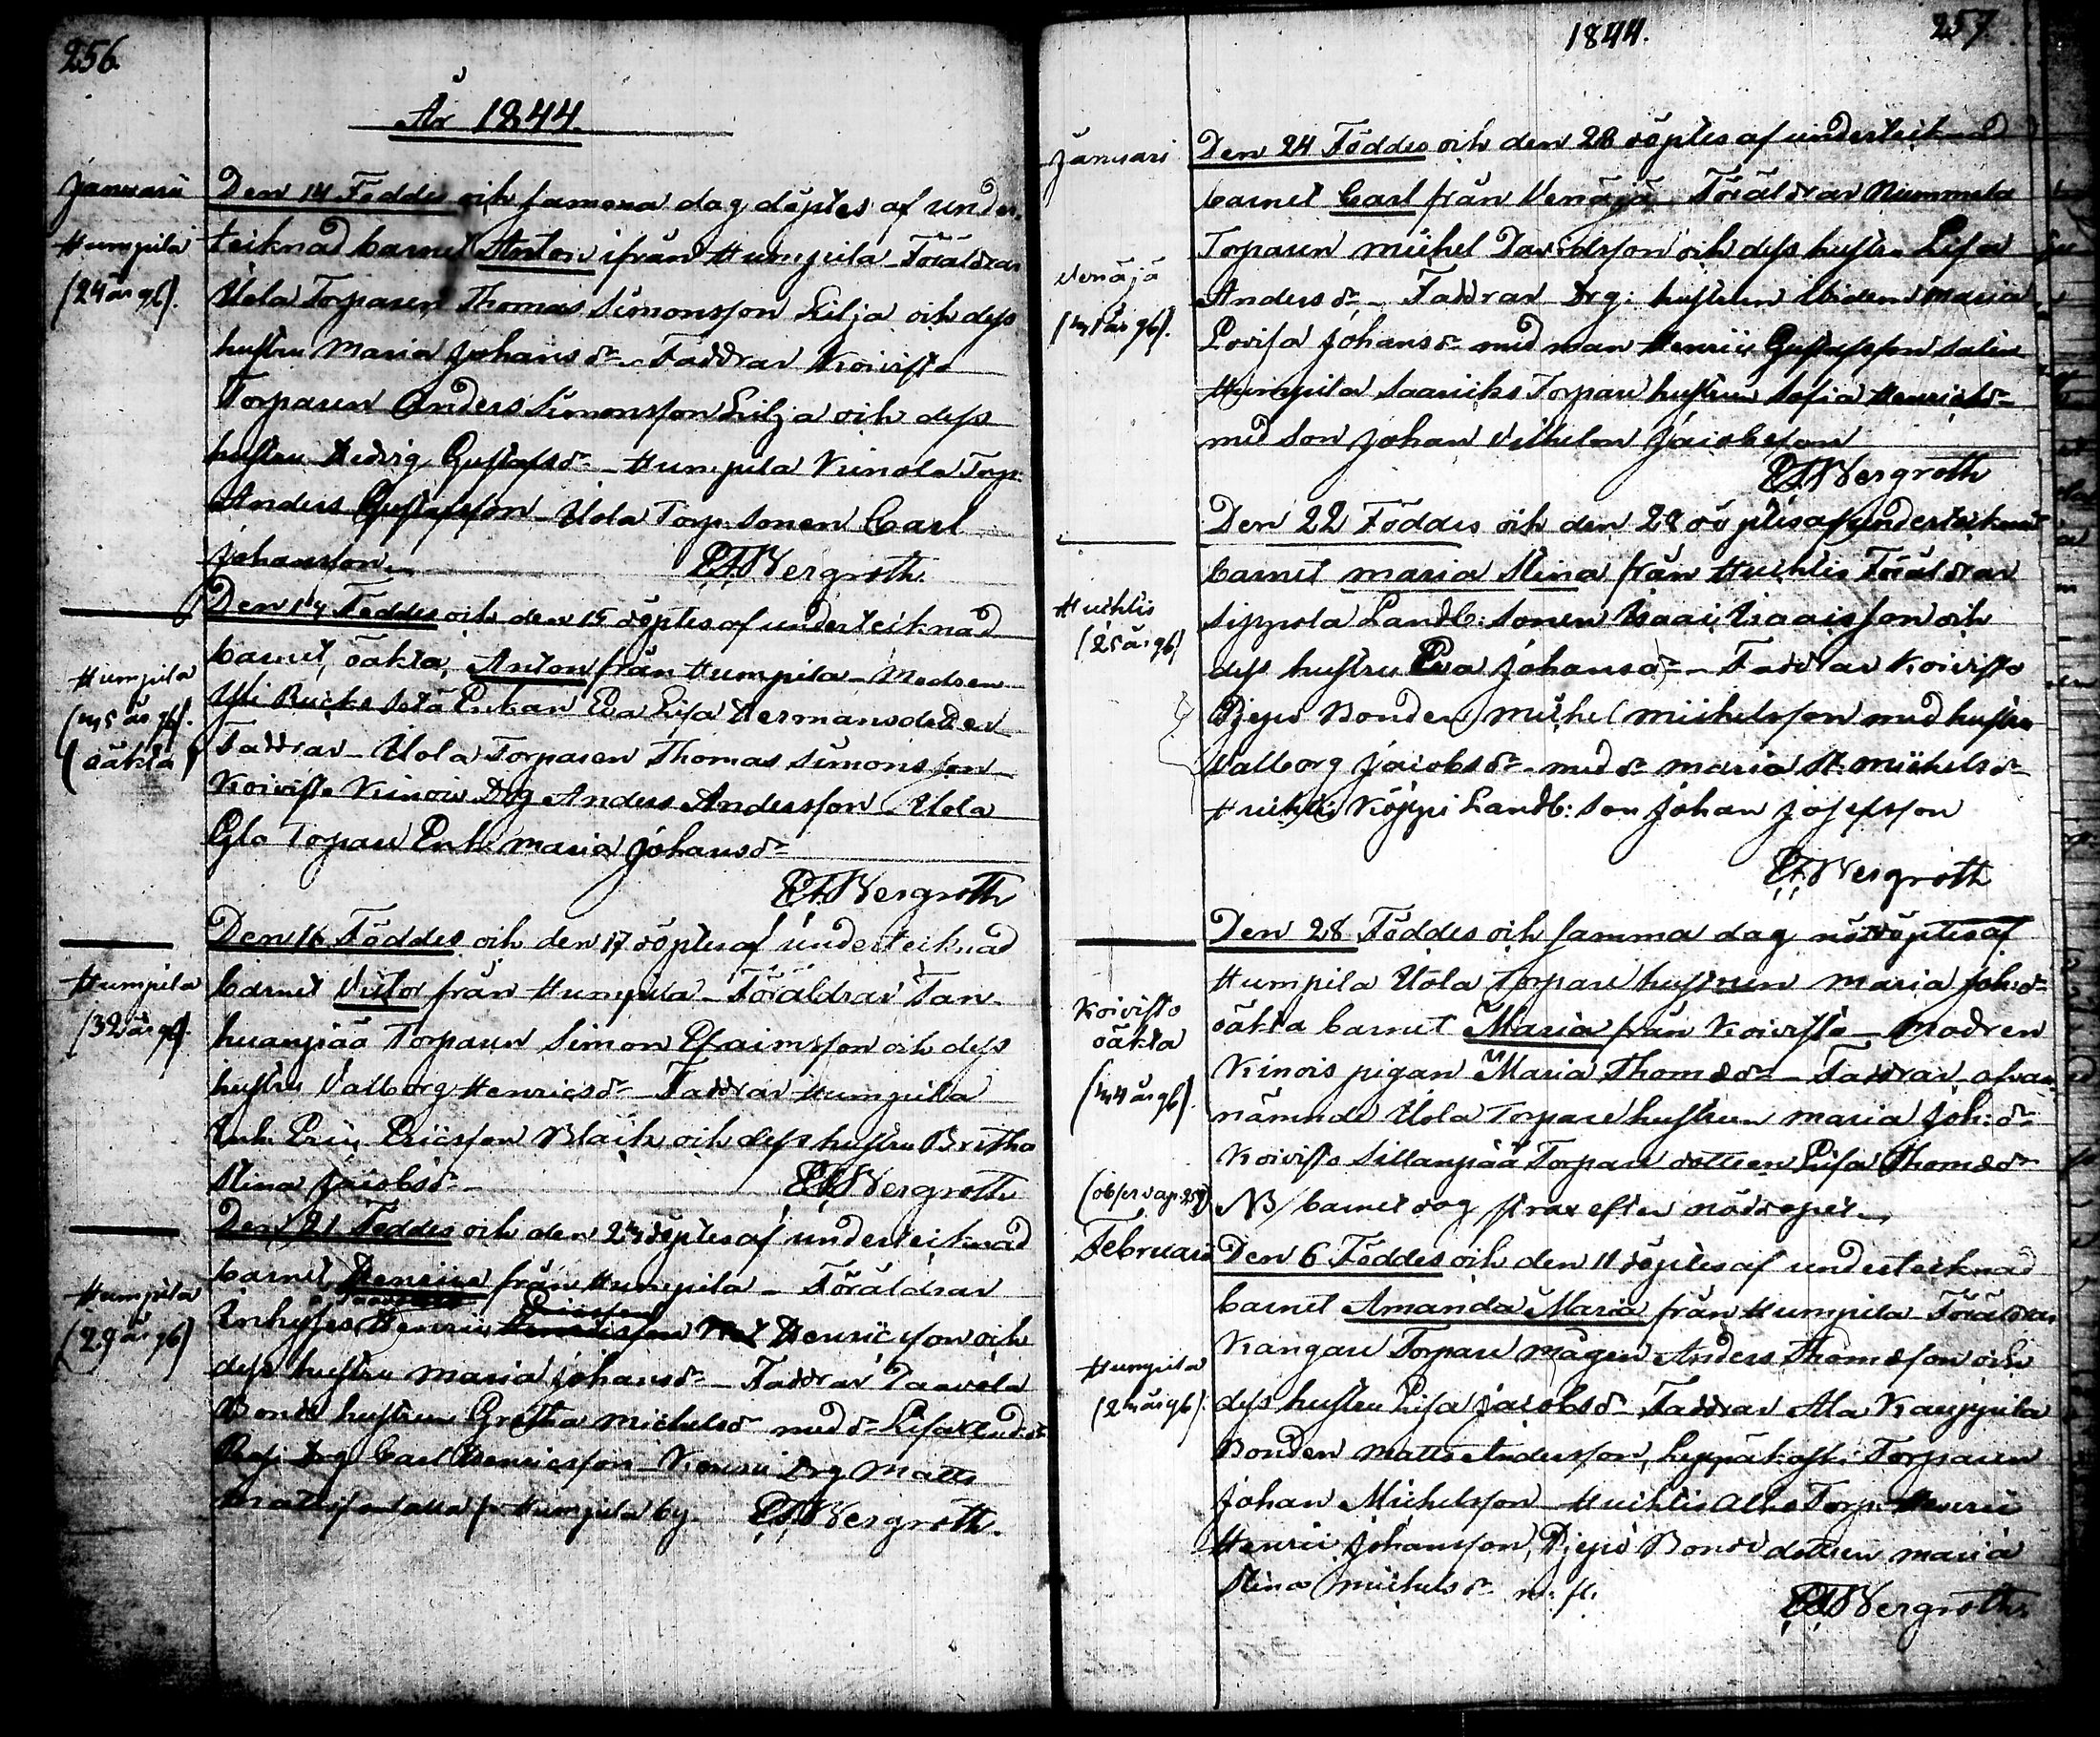 256
År 1844.
Januarii
Humpila
(24 år gl).
Den 14 Föddes och samma dag döptes af under-
teiknad barnet Anton ifrån Humpila - Föräldrar
Uola Torparen Thomas Simonsson Lilja och dess
hustru Maria Johansdr - Faddrar Koivisto
Torparen Anders Simonsson Lilja och dess
hustru Hedvig Gustafsdr - Humpila Torp:
Anders Gustafsson - Uola Torp: sonen Carl
Johansson. EFWergroth.
Humpila
(45 år gl).
(oäkta)
Den 14 Föddes och den 15 döptes af underteiknad
barnet, oäkta, Anton från Humpila - Modren
Enkan Eva Lisa Hermansdotter
Faddrar - Uola Torparen Thomas Simonsson
Koivisto Drg Anders Andersson - Uola
Torpare Enk: Maria Johansdr
EFWergroth
Humpila
(32 år gl).
Den 16 Föddes och den 17 döptes af underteiknad
barnet Victor från Humpila - Föräldrar Tan-
huanpää Torparen Simon Efraimsson och dess
hustru Valborg Henricsdr - Faddrar Humpila
Inh: Eric Ericsson Black och dess hustru Britha
Stina Jacobsdr EFWergroth
Humpila
(29 år gl)
Den 21 Föddes och den 24 döptes af underteiknad
barnet Henric från Humpila - Föräldrar
Inhyses Henric Henricsson och
dess hustru Maria Johansdr - Faddrar Taavela
Bonde hustrun Gretha Michelsdr med dr Lisa
Drg Carl Henricsson - Drg Matts
Mattsson alla fr Humpila by. EFWergroth.
1844. 257
Januari
Venäjä
(41 år gl).
Den 24 Föddes och den 28 döptes af underteiknad
barnet Carl från Venäjä. Föräldrar Nummela
Torparen Michel Davidsson och dess hustru Lisa
Andersdr - Faddrar Drg: hustrun ibidem Maria
Lovisa Johansdr med man Henric Gustafsson Salin
Humpila Torpare hustrun Sofia Henricsdr
med son Johan Vilhelm Jacobsson
EFWergroth
Huhtis
(25 år gl)
Den 22 Föddes och den 28 döptes af underteiknad
barnet Maria Stina från Huhtis Föräldrar
Sippola Landb: sonen Isaac Isaacsson och
dess hustru Eva Johansdr - Faddrar Koivisto
Bonden Michel Michelsson med hustru
Valborg Jacobsdr med dr Maria St: Michelsdr
Huhtis Köppi Landb: son Johan Josefsson
EFWergroth
Koivisto
oäkta
(44 år gl).
Den 28 Föddes och samma dag nöddöptes af
Humpila Uola Torpare hustrun Maria Joh:dr
oäkta barnet Maria från Koivisto - Modren
pigan Maria Thomædr - Faddrar ofvan-
nämnde Uola Torpare hustrun Maria Joh:dr
Koivisto Sillanpää Torpare dottren Lisa Thomædr
NB/ barnet dog strax efter nöddopet.
Februarii
Humpila
(24 år gl).
Den 6 Föddes och den 11 döptes af underteiknad
barnet Amanda Maria från Humpila - Föräldrar
Kangare Torpare mågen Anders Thomæson och
dess hustru Lisa Jacobsdr - Faddrar Ala Kauppila
Bonden Matts Andersson, Leppäkoski Torparen
Johan Michelsson - Huhtis Torp:
Henric Johansson, Bonde dottren Maria
Stina Michelsdr m. fl.
EFWergroth.